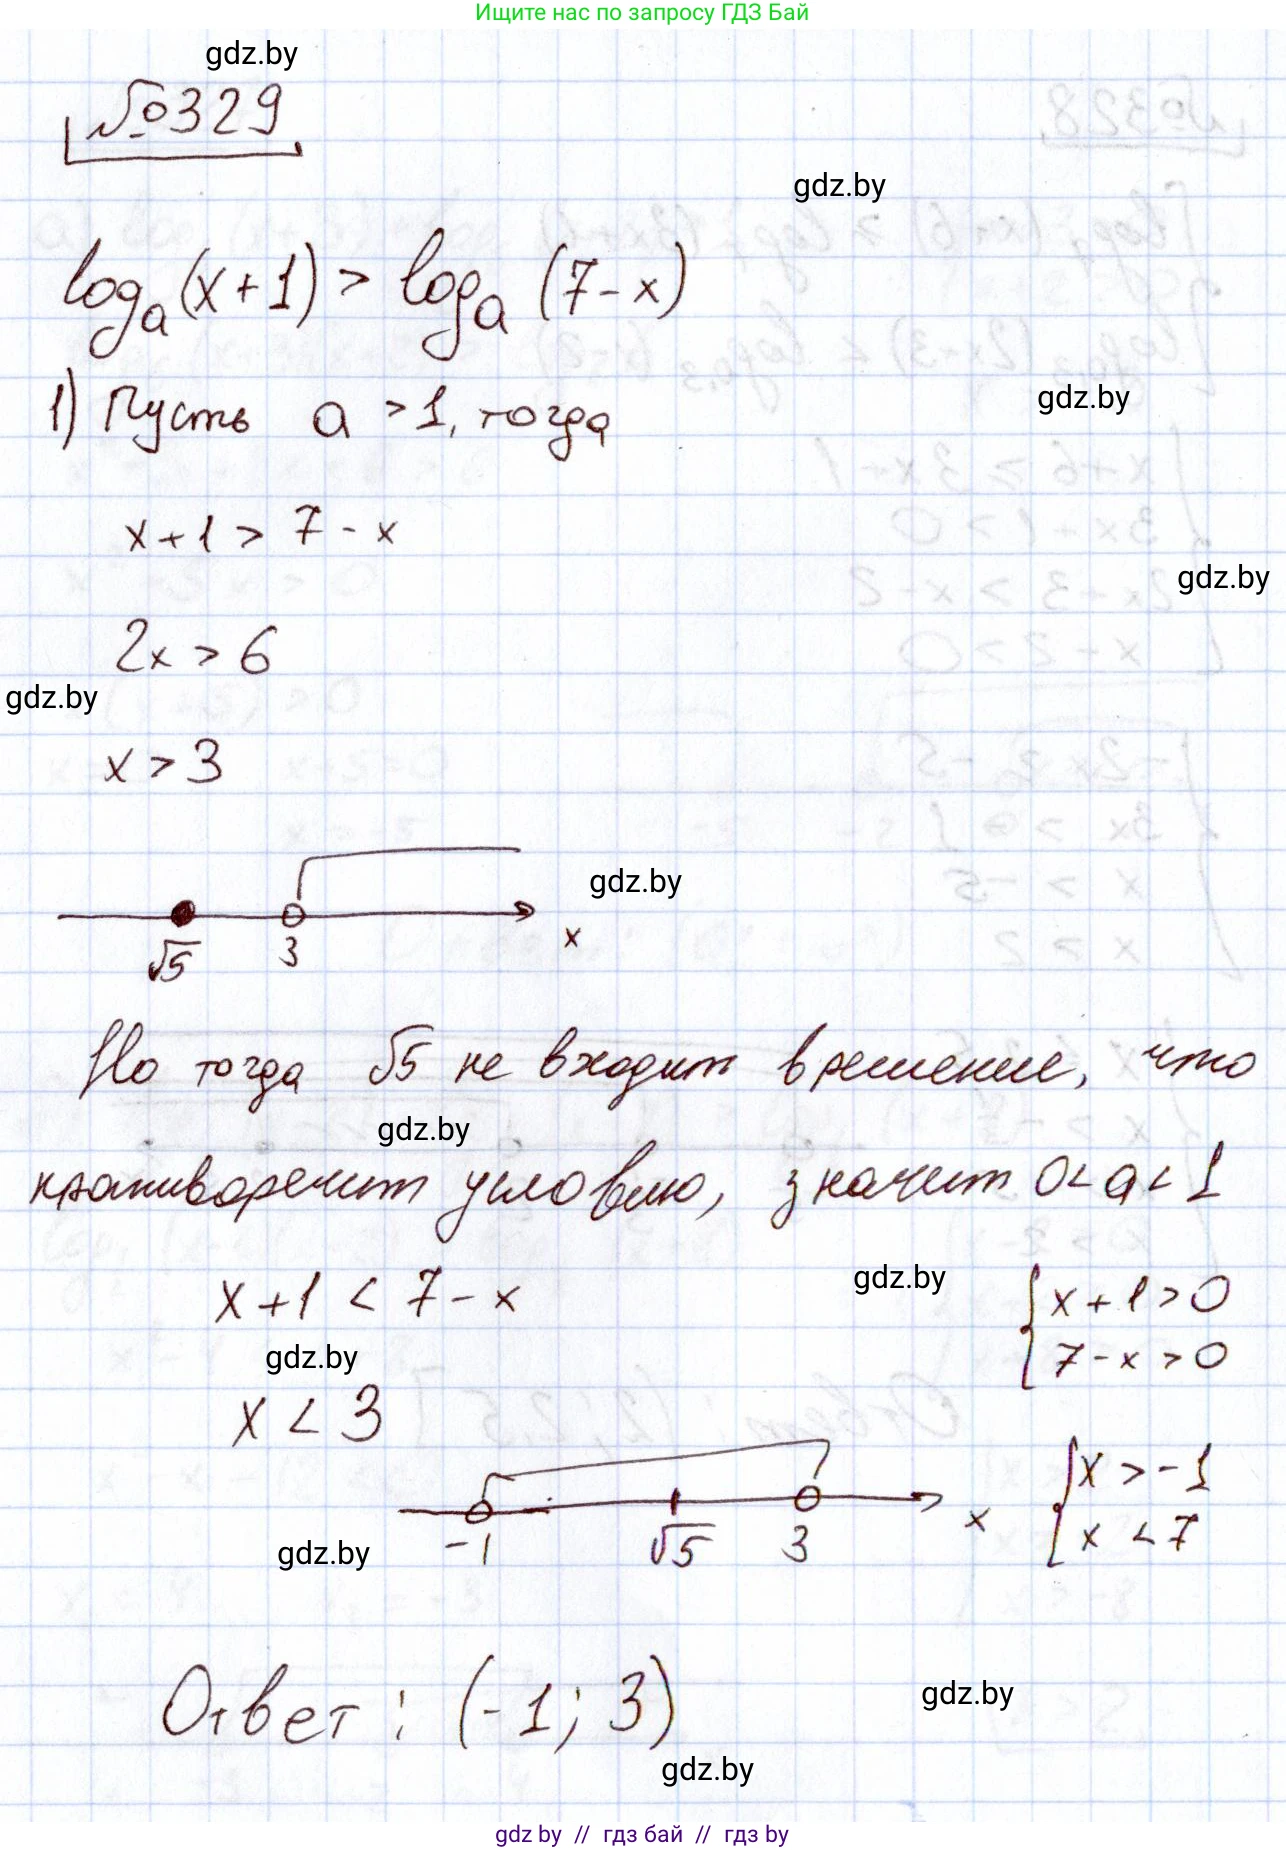 Ищите нас по запросу ГДЗ Бай
gdz.by
№329
gdz.by
logₐ(x+1) > logₐ(7-x)
gdz.by
1) Пусть a > 1, тогда
x+1 > 7-x
gdz.by
2x > 6
gdz.by
x > 3
gdz.by
√5 3 x
Но тогда √5 не входит в решение, что
gdz.by
противоречит условию, значит 0 < a < 1
gdz.by
x+1 < 7-x
{ x+1 > 0
7-x > 0
gdz.by
x < 3
{ x > -1
x < 7
-1 √5 3 x
gdz.by
Ответ: (-1; 3)
gdz.by
gdz.by
gdz by // гдз бай // гдз by